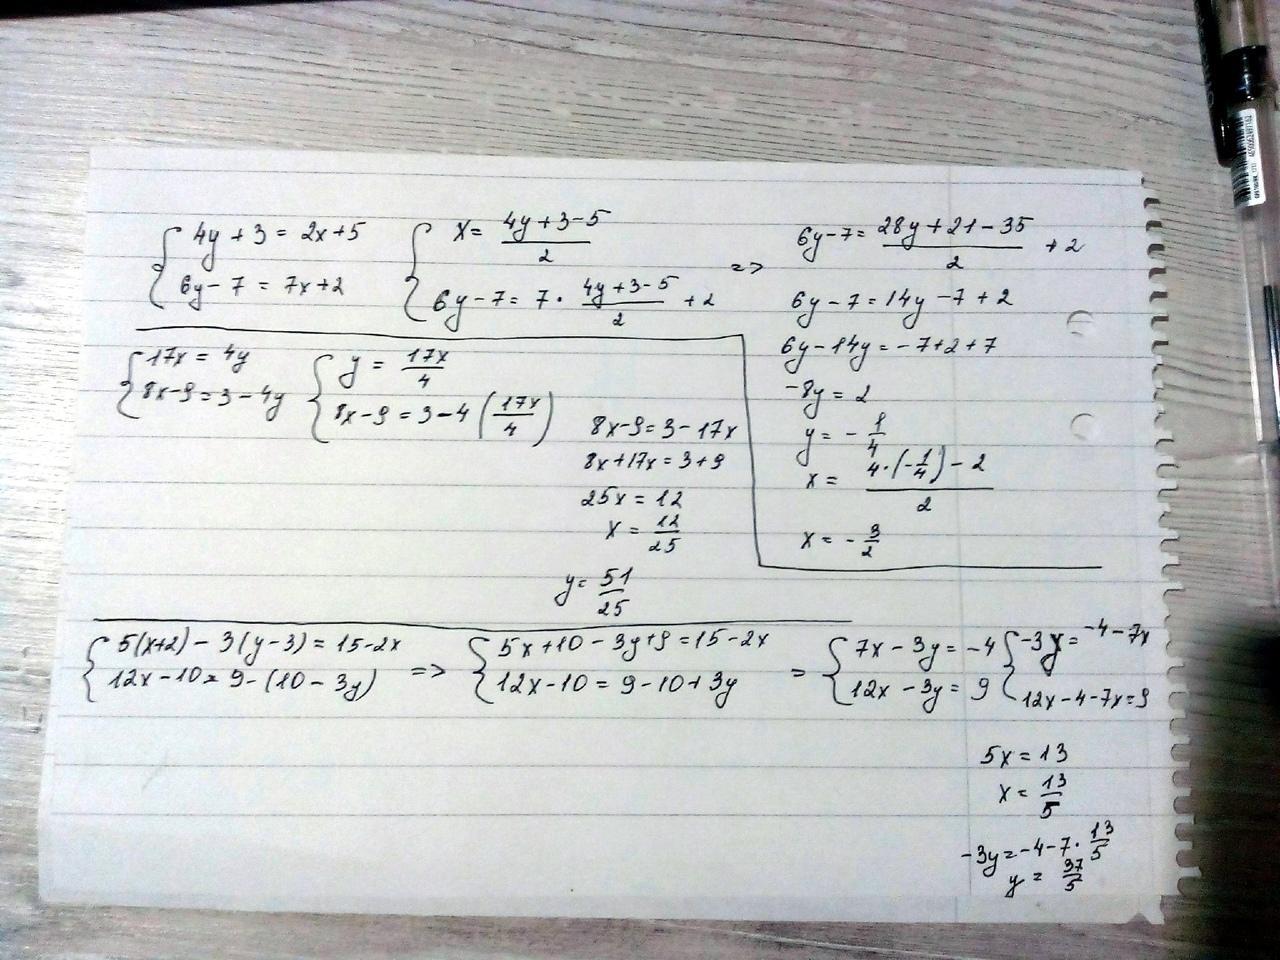 4y + 3 = 2x + 5
6y - 7 = 7x + 2
x = (4y + 3 - 5)/2
6y - 7 = 7 · (4y + 3 - 5)/2 + 2
=>
6y - 7 = (28y + 21 - 35)/2 + 2
6y - 7 = 14y - 7 + 2
6y - 14y = -7 + 2 + 7
-8y = 2
y = -1/4
x = (4 · (-1/4) - 2)/2
x = -3/2
17x = 4y
8x - 9 = 3 - 4y
y = 17x/4
8x - 9 = 3 - 4(17x/4)
8x - 9 = 3 - 17x
8x + 17x = 3 + 9
25x = 12
x = 12/25
y = 51/25
5(x+2) - 3(y-3) = 15 - 2x
12x - 10 = 9 - (10 - 3y)
=>
5x + 10 - 3y + 9 = 15 - 2x
12x - 10 = 9 - 10 + 3y
=
7x - 3y = -4
12x - 3y = 9
-3y = -4 - 7x
12x - 4 - 7x = 9
5x = 13
x = 13/5
-3y = -4 - 7 · 13/5
y = 37/5